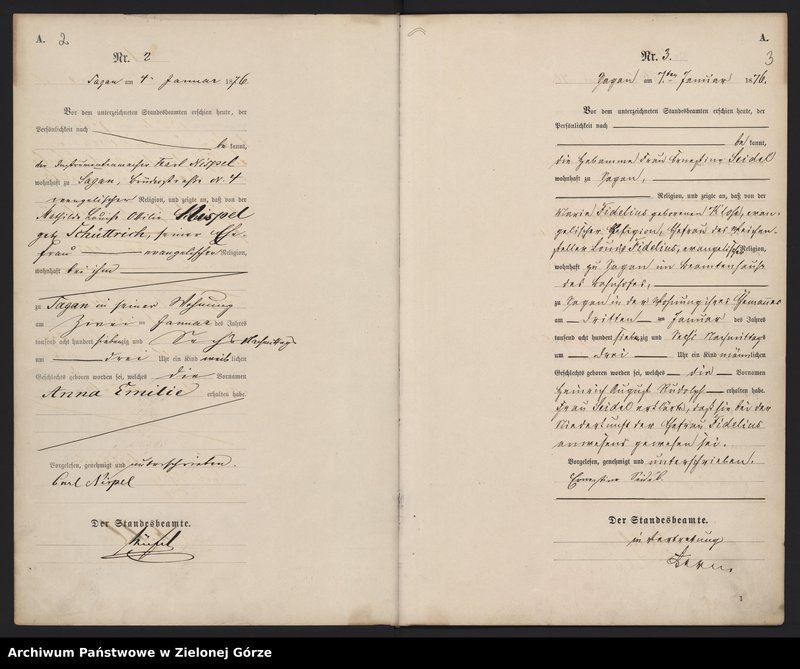 A. 2
Nr. 2
Sagan am 4. Januar 1876.
Vor dem unterzeichneten Standesbeamten erschien heute, der
Persönlichkeit nach
be kannt,
der Instrumentenmacher Karl Nispel
wohnhaft zu Sagan, Brüderstraße N. 4
evangelischer Religion, und zeigte an, daß von der
Mathilde Louise Otilie Nispel
geb. Schüttrich, seiner Ehe-
frau evangelischer Religion,
wohnhaft bei ihm
zu Sagan in seiner Wohnung
am Zwei ten Januar des Jahres
tausend acht hundert siebenzig und Sechs Nachmittags
um drei Uhr ein Kind weiblichen
Geschlechts geboren worden sei, welches die Vornamen
Anna Emilie erhalten habe.
Vorgelesen, genehmigt und unterschrieben.
Carl Nispel
Der Standesbeamte.
A.
3
Nr. 3.
Sagan am 7ten Januar 1876.
Vor dem unterzeichneten Standesbeamten erschien heute, der
Persönlichkeit nach
be kannt,
die Hebamme Frau Ernestine Seidel
wohnhaft zu Sagan,
Religion, und zeigte an, daß von der
Maria Fidelius geborenen Kloß, evan-
gelischer Religion, Ehefrau des Weichen-
steller Louis Fidelius, evangelischer Religion,
wohnhaft zu Sagan im Beamtenhause
des Bahnhofes,
zu Sagan in der Wohnung ihres Ehemannes
am dritten ten Januar des Jahres
tausend acht hundert siebenzig und Sechs Nachmittags
um drei Uhr ein Kind männlichen
Geschlechts geboren worden sei, welches die Vornamen
Heinrich August Rudolph erhalten habe.
Frau Seidel erklärte, daß sie bei der
Niederkunft der Ehefrau Fidelius
anwesend gewesen sei.
Vorgelesen, genehmigt und unterschrieben.
Ernestine Seidel.
Der Standesbeamte.
in Vertretung
1
Archiwum Państwowe w Zielonej Górze